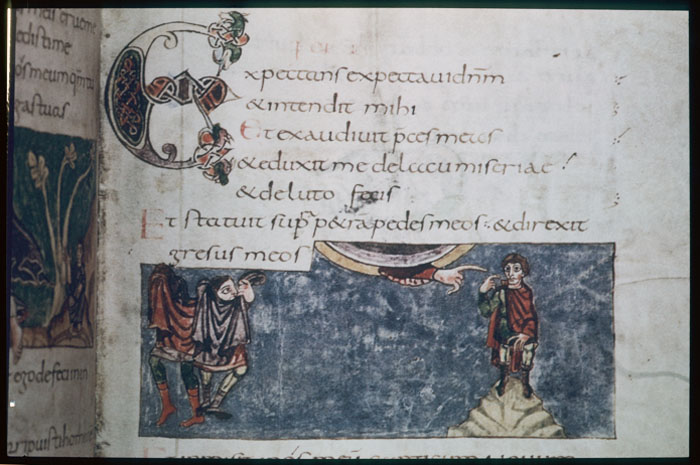 edistime
gastuos
Expectans expectauidnm̄
& intendit mihi
Et exaudiuit p̄ces meas
& eduxit me delacu miseriae
& deluto fecis
Et statuit sup̄ p&ra pedes meos : & direxit
gresus meos